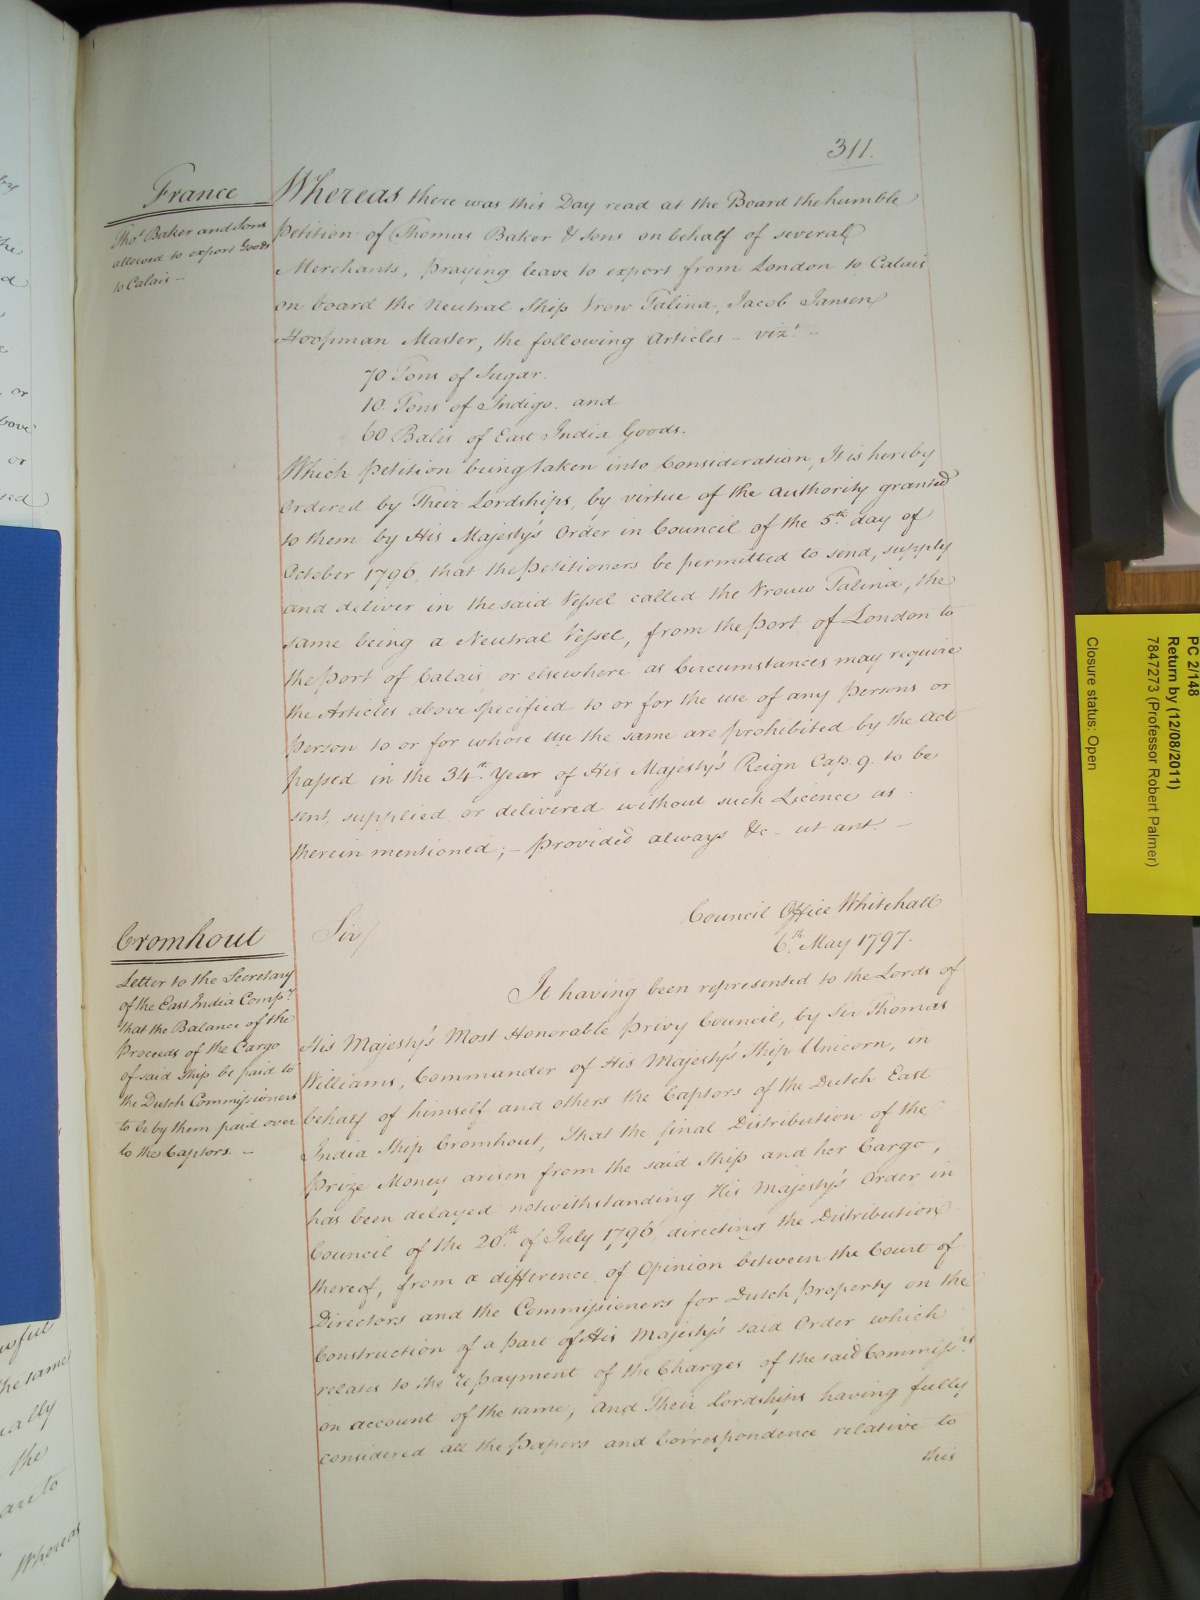 311.
France
Tho.s Baker and Sons
allowed to export Goods
to Calais –
Whereas there was this Day read at the Board the humble
Petition of Thomas Baker & Sons on behalf of several
Merchants, praying leave to export from London to Calais
on board the Neutral Ship Vrow Talina, Jacob Jansen
Hoopman Master, the following Articles – viz.t –
70 Tons of Sugar.
10 Tons of Indigo. and
60 Bales of East India Goods.
Which Petition being taken into Consideration, It is hereby
Ordered by Their Lordships, by virtue of the authority granted
to them by His Majesty's Order in Council of the 5.th day of
October 1796, that the Petitioners be permitted to send, supply
and deliver in the said Vessel called the Vrouw Talina, the
same being a Neutral Vessel, from the Port of London to
the Port of Calais, or elsewhere as Circumstances may require
the Articles above specified to or for the use of any Persons or
Person to or for whose Use the same are prohibited by the Act
passed in the 34.th Year of His Majesty's Reign Cap. 9. to be
sent, supplied, or delivered without such Licence as
therein mentioned; – provided always &c – ut ant. –
Council Office Whitehall
6.th May 1797.
Cromhout
Letter to the Secretary
of the East India Comp.y
that the Balance of the
Proceeds of the Cargo
of said Ship be paid to
the Dutch Commissioners
to be by them paid over
to the Captors. –
Sir/
It having been represented to the Lords of
His Majesty's Most Honorable Privy Council, by Sir Thomas
Williams, Commander of His Majesty's Ship Unicorn, in
behalf of himself and others the Captors of the Dutch East
India Ship Cromhout, that the final Distribution of the
Prize Money arisen from the said Ship and her Cargo,
has been delayed notwithstanding His Majesty's Order in
Council of the 20.th of July 1796, directing the Distribution
thereof, from a difference of Opinion between the Court of
Directors and the Commissioners for Dutch Property on the
Construction of a part of His Majesty's said Order which
relates to the repayment of the Charges of the said Commiss.rs
on account of the same; And Their Lordships having fully
considered all the Papers and Correspondence relative to
this
or
or
wful
the same
ually
the
Whereas
PC 2/148
Return by (12/08/2011)
7847273 (Professor Robert Palmer)
Closure status: Open